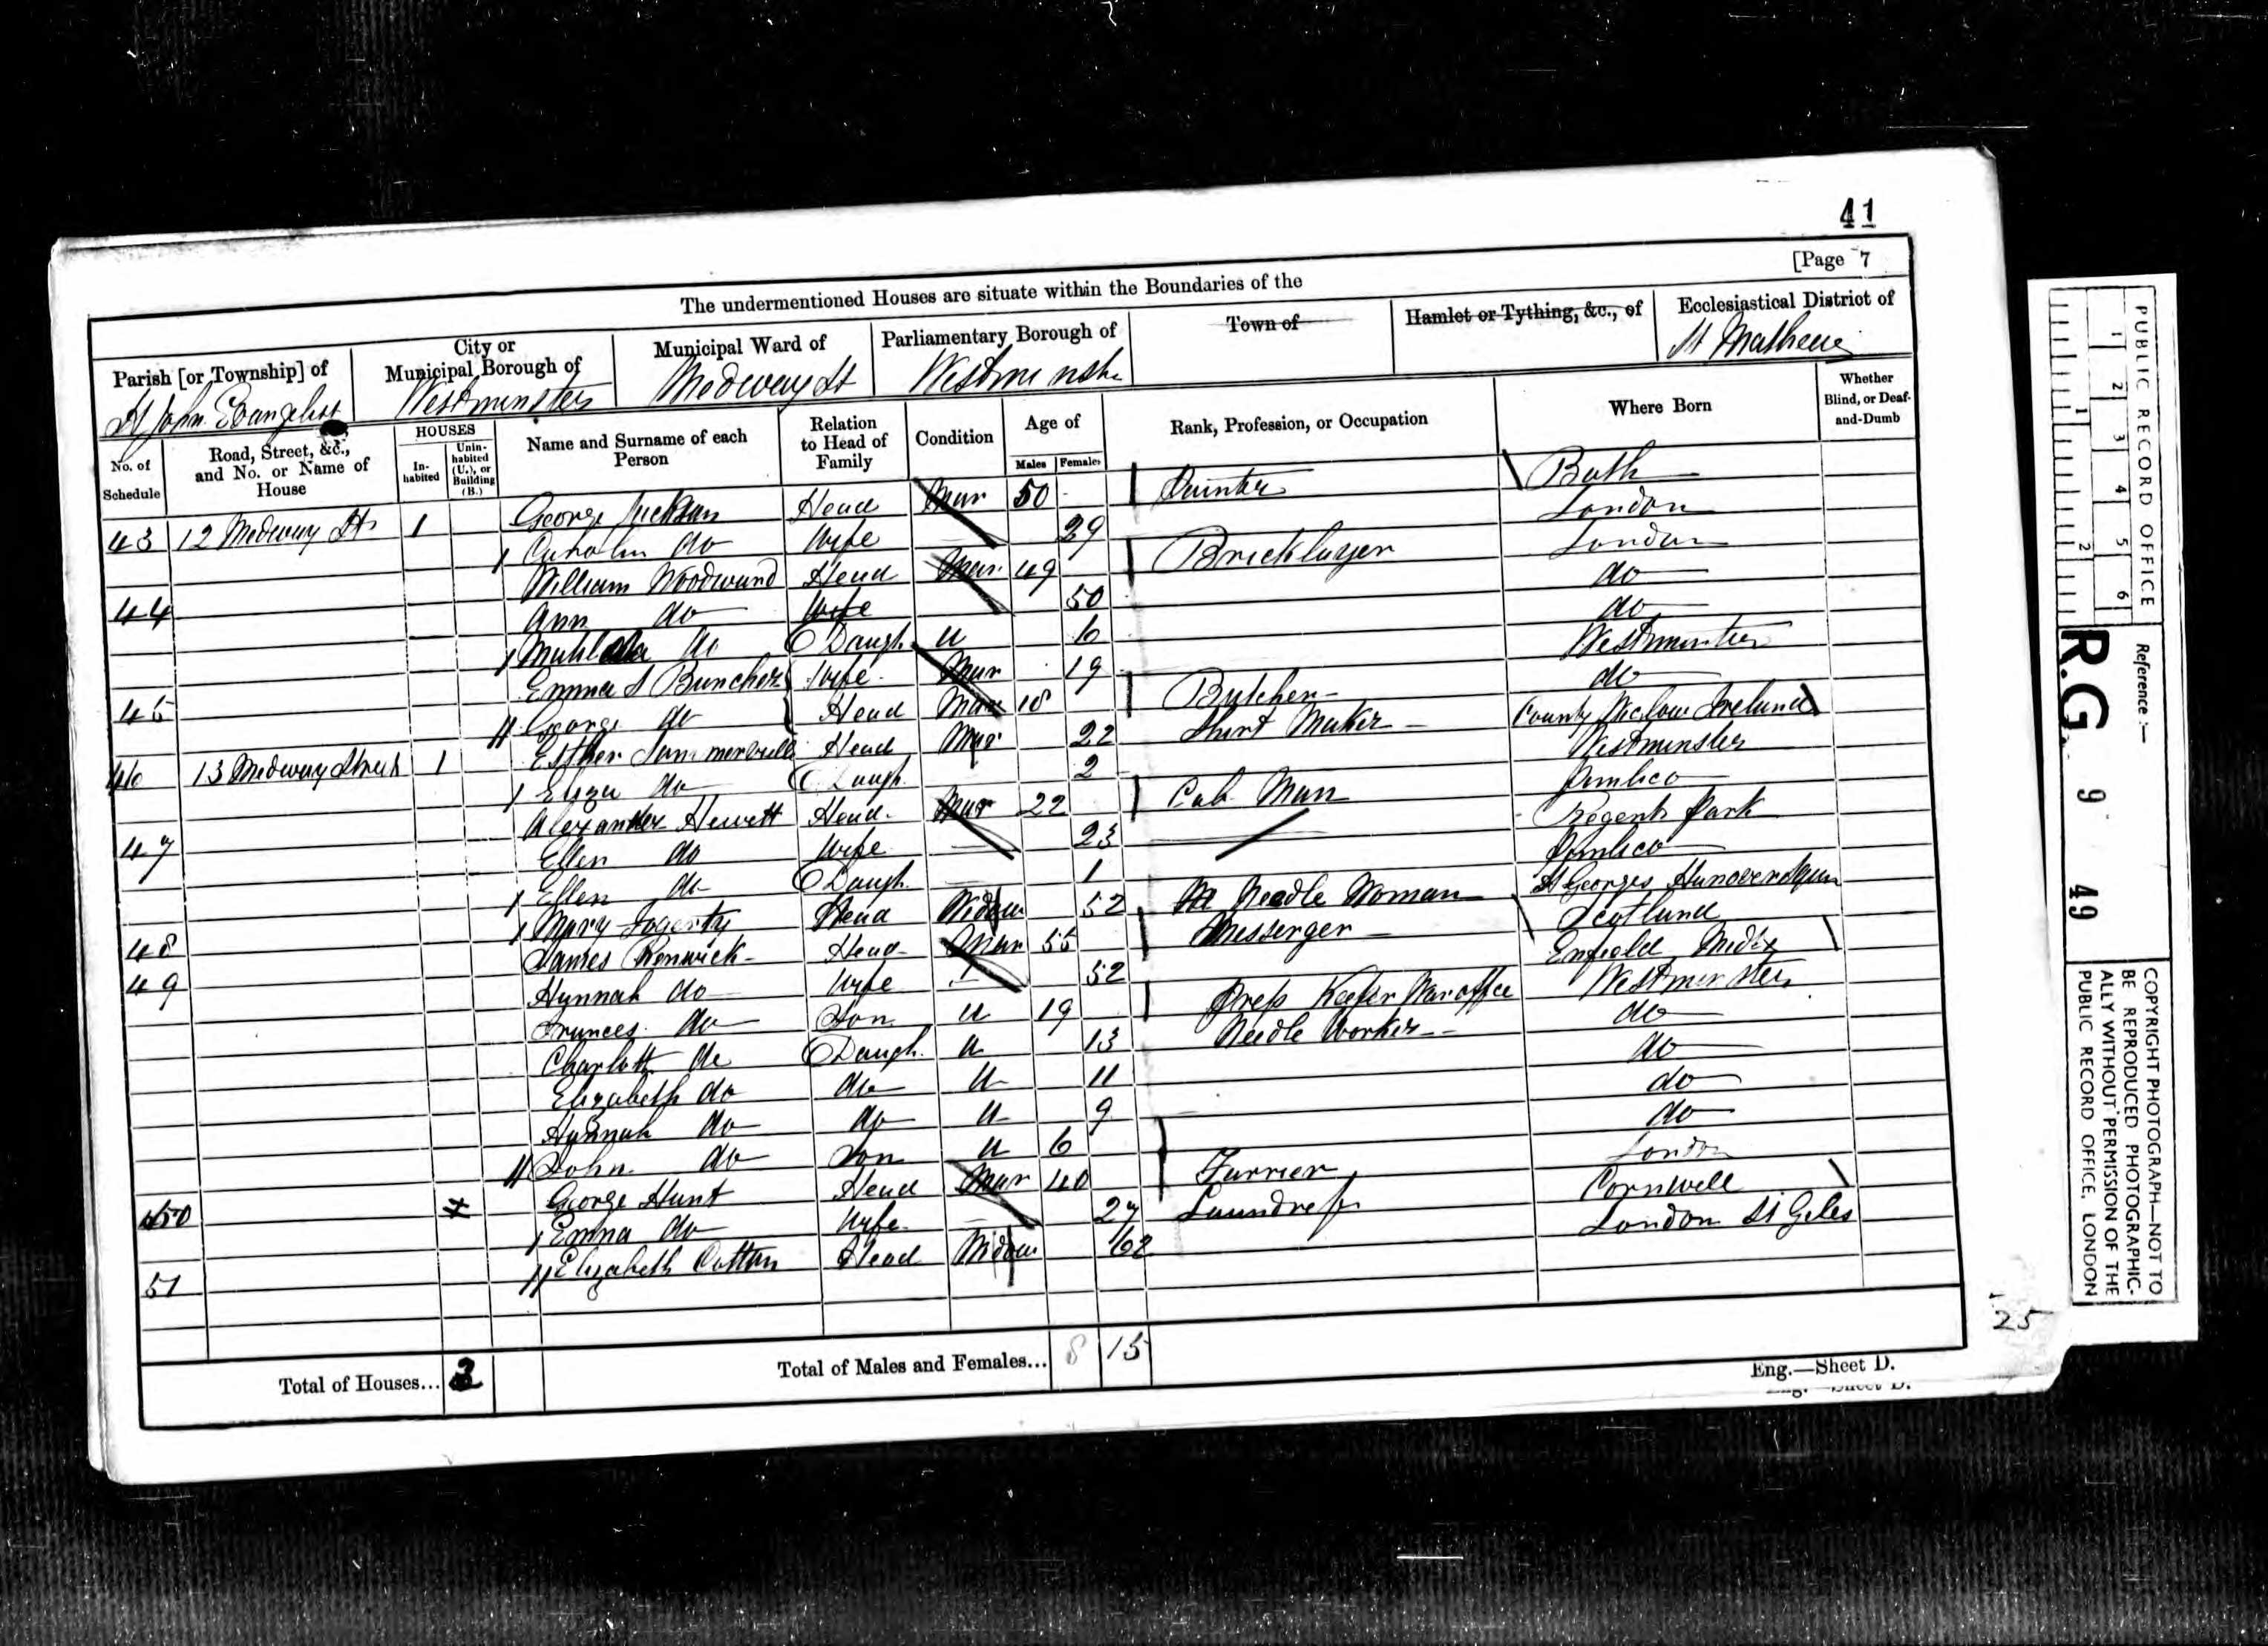 41
[Page 7
The undermentioned Houses are situate within the Boundaries of the
Parish [or Township] of
St John Evangelist
City or Municipal Borough of
Westminster
Municipal Ward of
Medway St
Parliamentary Borough of
Westminster
Town of
Hamlet or Tything, &c., of
Ecclesiastical District of
St Mathews
No. of Schedule
Road, Street, &c., and No. or Name of House
HOUSES
Inhabited
Uninhabited (U.), or Building (B.)
Name and Surname of each Person
Relation to Head of Family
Condition
Age of
Males Females
Rank, Profession, or Occupation
Where Born
Whether Blind, or Deaf-and-Dumb
43 12 Medway St 1 George Jackson Head Mar 50 Painter Bath
do Wife 29 London
44 William Woodward Head Mar 49 Bricklayer London
Ann do Wife 50 do
do Daugh. U 6 do
45 Emma S Buncher Wife Mar 19 Westminster
George do Head Mar 18 Butcher do
46 13 Medway Street 1 Esther Sommerville Head Mar 22 Shirt Maker County Wicklow Ireland
Eliza do Daugh. 2 Westminster
47 Alexander Hewett Head Mar 22 Cab Man Pimlico
Ellen do Wife 23 Regents Park
Ellen do Daugh. 1 Pimlico
48 Mary Fogerty Head Widow 52 Needle Woman St Georges Hanover Squar
49 James Renwick Head Mar 55 Messenger Scotland
Hannah do Wife 52 Enfield Midx
Frances do Son U 19 Press Keeper War office Westminster
Charlotte do Daugh. U 13 Needle Worker do
Elizabeth do do U 11 do
Hannah do do U 9 do
John do Son U 6 do
50 George Hunt Head Mar 40 Furrier London
Emma do Wife 27 Laundress Cornwell
51 Elizabeth Cottan Head Widow 62 London St Giles
Total of Houses... 2
Total of Males and Females... 8 15
Eng.—Sheet D.
Eng.—Sheet D.
25
PUBLIC RECORD OFFICE
1 2 3 4 5 6
1 2
Reference:—
R.G. 9 49
COPYRIGHT PHOTOGRAPH—NOT TO
BE REPRODUCED PHOTOGRAPHIC-
ALLY WITHOUT PERMISSION OF THE
PUBLIC RECORD OFFICE, LONDON